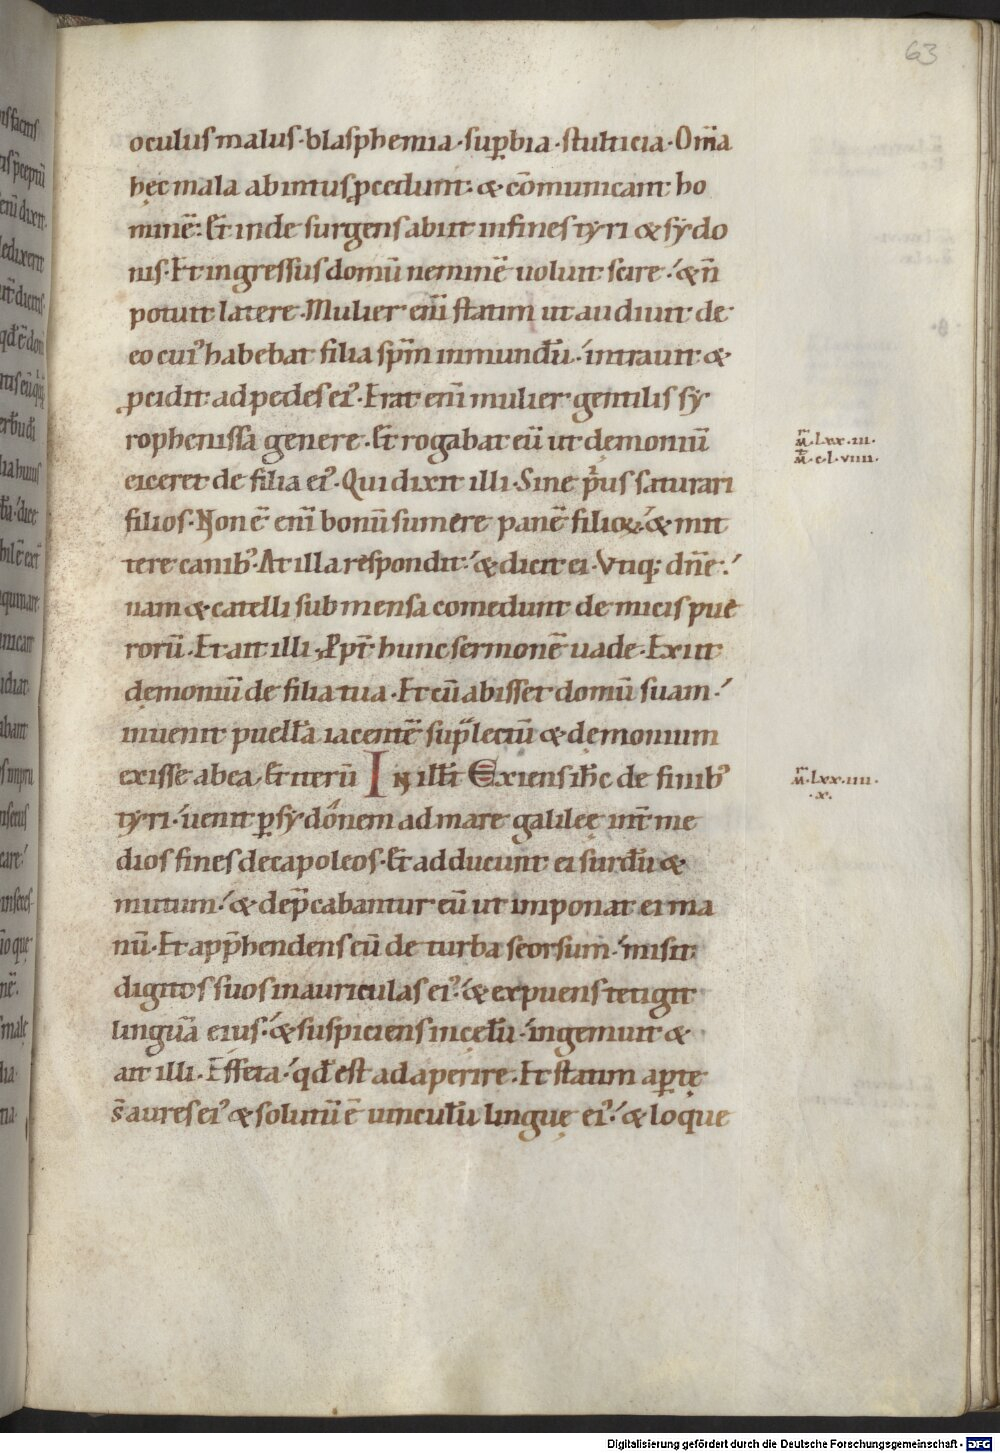 63
oculus malus · blasphemia · sup̱bia · stulticia · Om̄a
hęc mala ab intus ꝓcedunt · & cōmunicant ho
minē · Et inde surgens abiit in fines tyri & sydo
nis · Et ingressus domū neminē uoluit scire · & n̄
potuit latere · Mulier eni̅ statim ut audiuit de
eo cuiꝰ habebat filia spm̄ inmundū · intrauit &
ꝓcidit ad pedes eiꝰ · Erat eni̅ mulier gentilis sy
rophenissa genere · Et rogabat eū ut demoniū
eiceret de filia eiꝰ · Qui dixit illi · Sine pͥus saturari
filios · Non ē eni̅ bonū sumere panē filioꝝ · & mit
tere canibꝰ · At illa respondit · & dicit ei · Vtiq; dn̄e ·
nam & catelli sub mensa comedunt de micis pue
rorū · Et ait illi · Ꝓpt̄ hunc sermonē uade · Exiit
demoniū de filia tua · Et cū abisset domū suam ·
inuenit puellā iacentē sup̱ lectū & demonium
exisse ab ea · Et iterū In ill̄t Exiens ih̄c de finibꝰ
tyri · uenit ꝑ sydónem ad mare galileę int̄ me
dios fines decapoleos · Et adducunt ei surdū &
mutum · & dep̄cabantur eū ut imponat ei ma
nū · Et app̄hendens eū de turba seorsum · misit
digitos suos in auriculas eiꝰ · & expuens tetigit
linguā eius · & suspiciens in cęlū · ingemuit &
ait illi · Effeta · qd̄ est adaperire · Et statim ap̱tę
s̄ aures eiꝰ & solutū ē uinculū linguę eiꝰ · & loque
m̄ · lxx · iii ·
m̄ · c · l · viiii ·
m̄ · lxx · iiii ·
· x ·
Digitalisierung gefördert durch die Deutsche Forschungsgemeinschaft - DFG